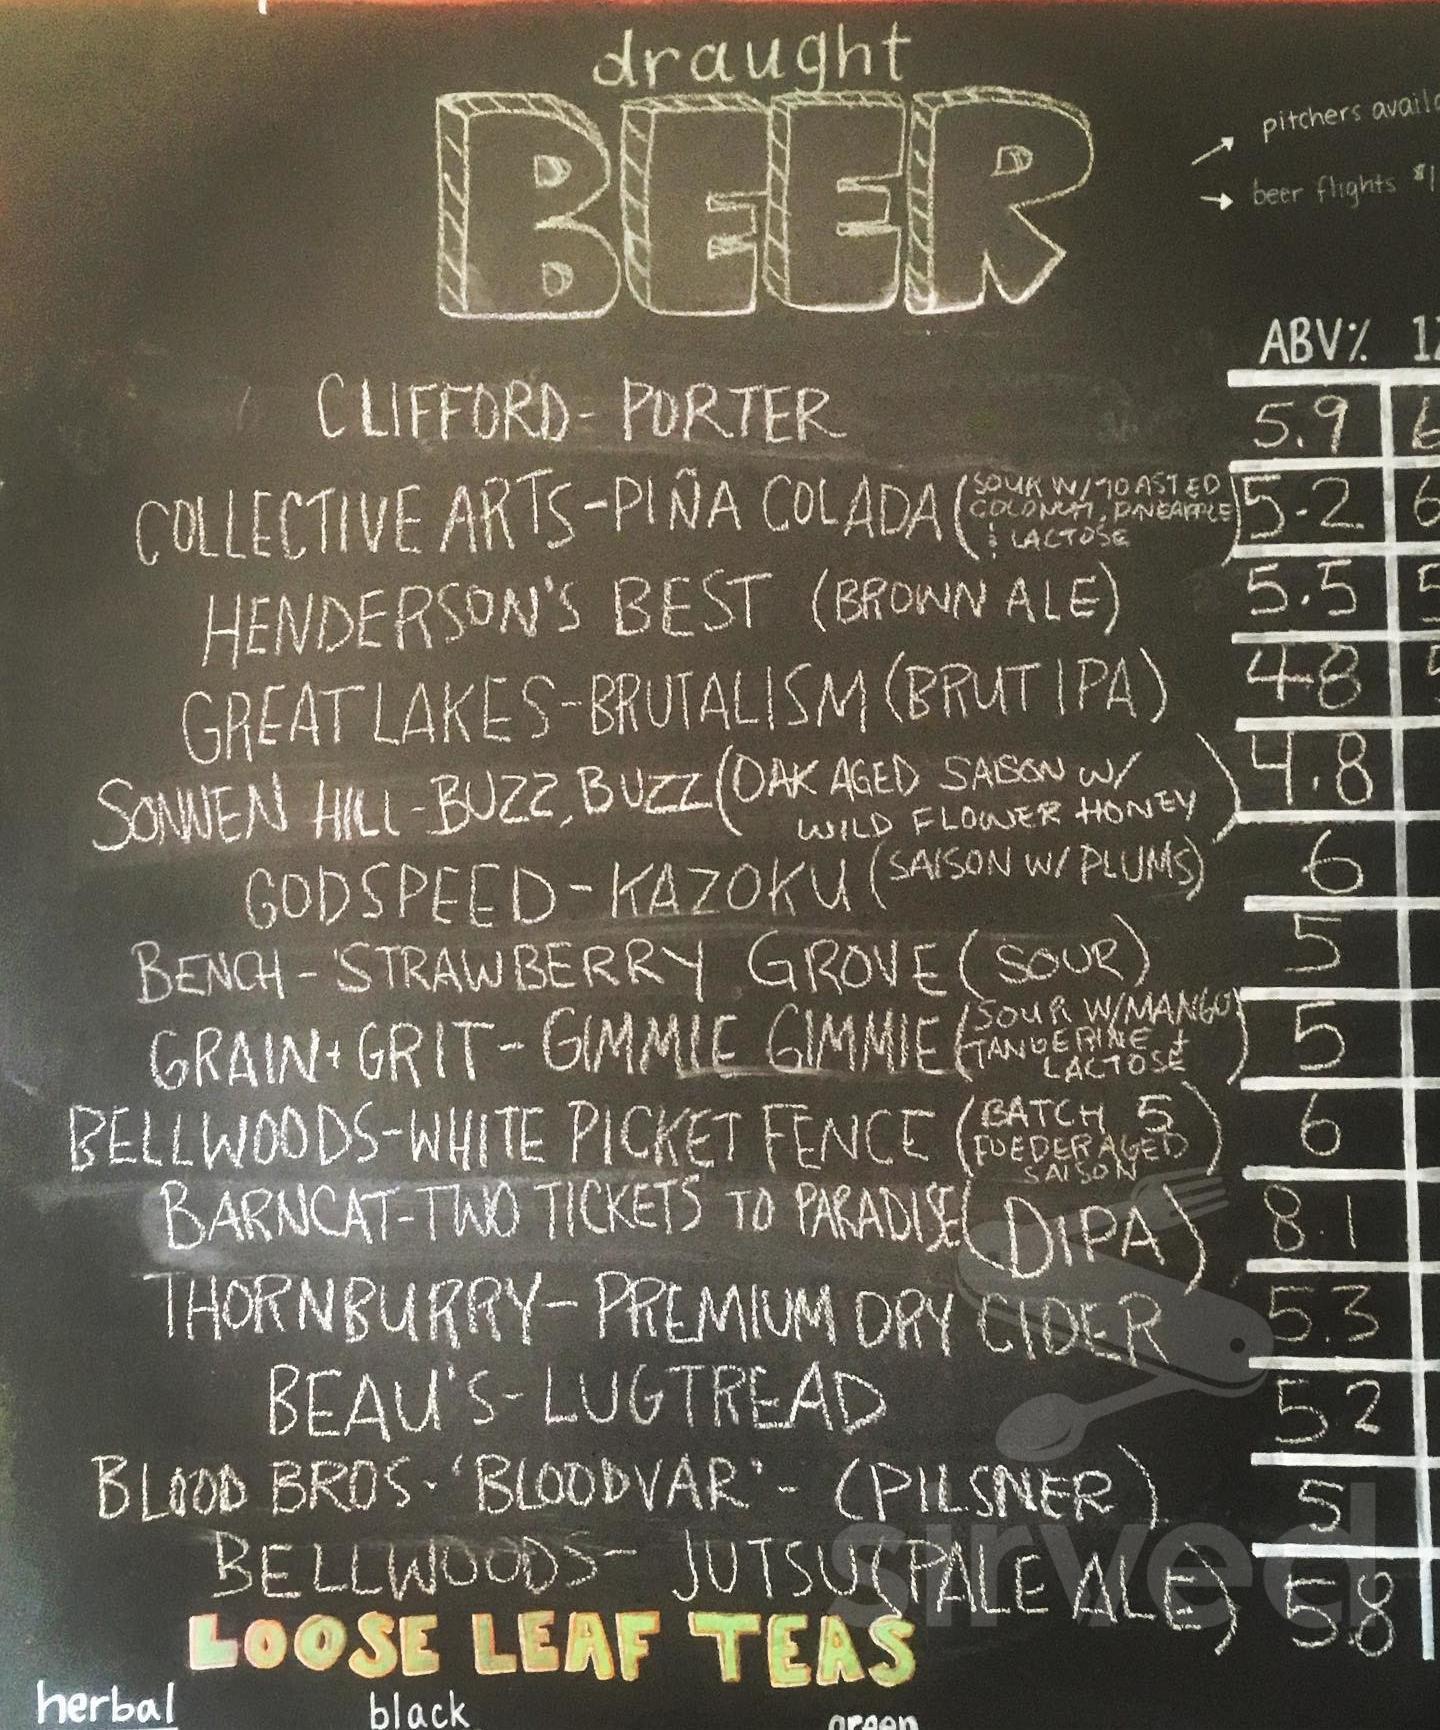 draught
BEER
pitchers
beer flights $1
ABV%
CLIFFORD - PORTER 5.9
COLLECTIVE ARTS - PIÑA COLADA (SOUR W/ TOASTED
COCONUT, PINEAPPLE
& LACTOSE) 5.2
HENDERSON'S BEST (BROWN ALE) 5.5
GREAT LAKES - BRUTALISM (BRUT IPA) 4.8
SONNEN HILL - BUZZ, BUZZ (OAK AGED SAISON W/
WILD FLOWER HONEY) 4.8
GODSPEED - KAZOKU (SAISON W/ PLUMS) 6
BENCH - STRAWBERRY GROVE (SOUR) 5
GRAIN + GRIT - GIMMIE GIMMIE (SOUR W/ MANGO
TANGERINE +
LACTOSE) 5
BELLWOODS - WHITE PICKET FENCE (BATCH 5
FOEDER AGED
SAISON) 6
BARNCAT - TWO TICKETS TO PARADISE (DIPA) 8.1
THORNBURRY - PREMIUM DRY CIDER 5.3
BEAU'S - LUGTREAD 5.2
BLOOD BROS - 'BLOODVAR' - (PILSNER) 5
BELLWOODS - JUTSU (PALE ALE) 5.8
sirved
LOOSE LEAF TEAS
herbal black green